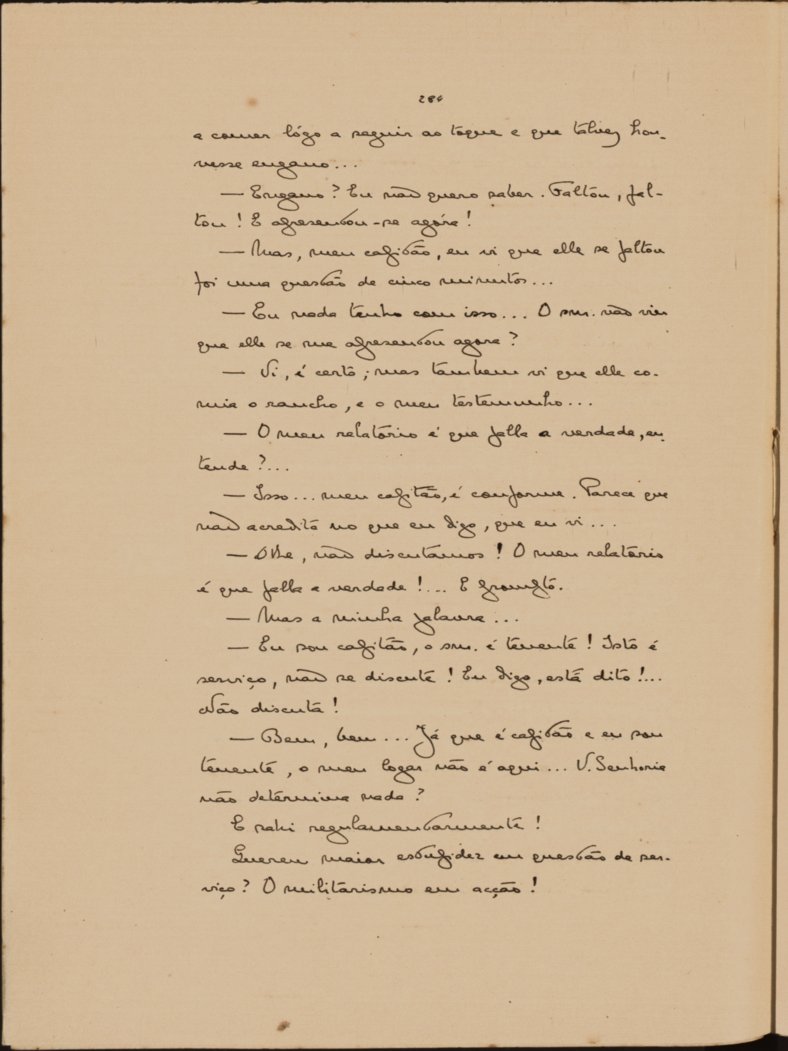 284
a comer lógo a seguir ao toque e que talvez hou-
vesse engano...
— Engano? Eu não quero saber. Faltou, fal-
tou! E apresentou-se agóra!
— Mas, meu capitão, eu vi que elle se faltou
foi uma questão de cinco minutos...
— Eu nada tenho com isso... O snr. não viu
que elle se me apresentou agora?
— Vi, é certo; mas tambem vi que elle co-
mia o rancho, e o meu testemunho...
— O meu relatório é que falla a verdade, en-
tende?...
— Isso... meu capitão, é conforme. Parece que
não acredita no que eu digo, que eu vi...
— Olhe, não discutâmos! O meu relatório
é que falla a verdade!... E prompto.
— Mas a minha palavra...
— Eu sou capitão, o snr. é tenente! Isto é
serviço, não se discute! Eu digo, está dito!...
Não discuta!
— Bem, bem... Já que é capitão e eu sou
tenente, o meu logar não é aqui... V. Senhoria
não determina nada?
E sahi regulamentarmente!
Querem maior estupidez em questão de ser-
viço? O militarismo em acção!